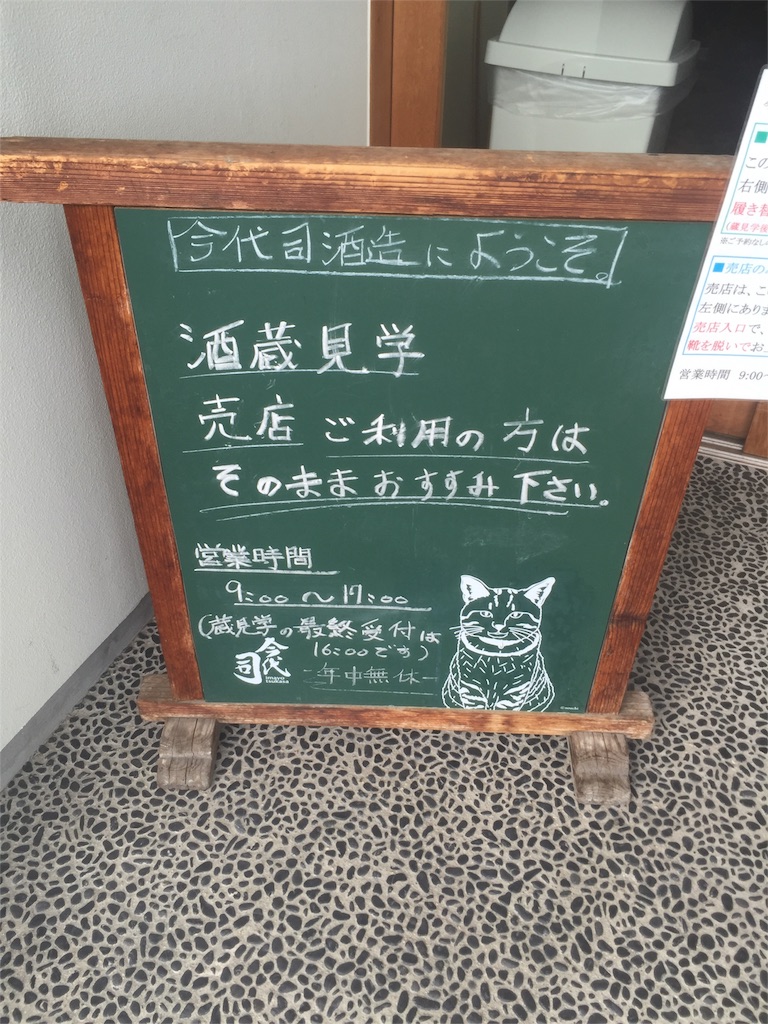 今代司酒造にようこそ。
酒蔵見学
売店ご利用の方は
そのままおすすみ下さい。
営業時間
9:00～17:00
(蔵見学の最終受付は
16:00です)
-年中無休-
今代司
imayo
tsukasa
この
右側
履き替
(蔵見学後
※ご予約なし
■売店の
売店は、こ
左側にあります
売店入口で、
靴を脱いでお
営業時間 9:00~